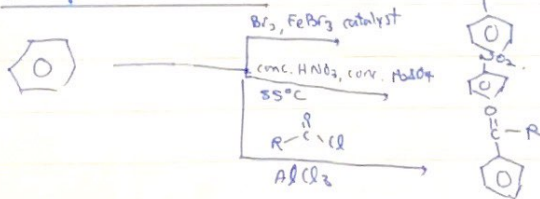 Br₂, FeBr₃ catalyst
NO₂
conc. HNO₃, conc. H₂SO₄
55°C
O
R-C-Cl
AlCl₃
O
C-R